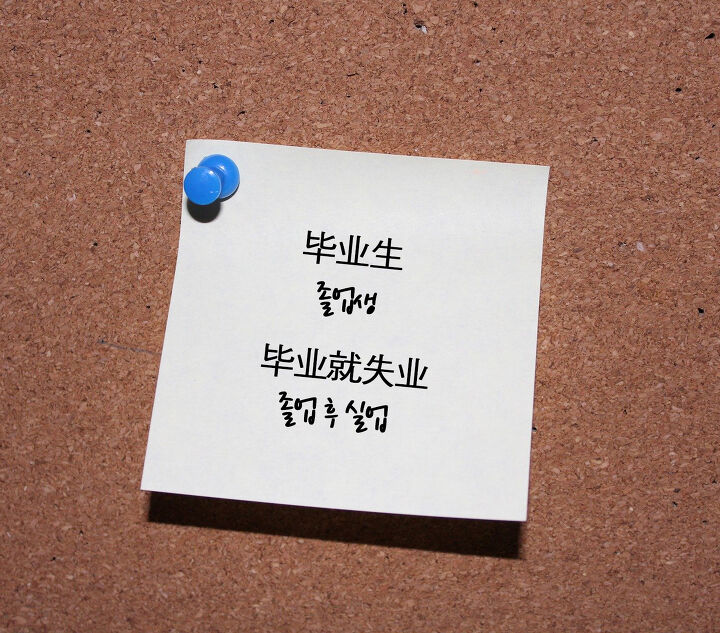 毕业生
졸업생
毕业就失业
졸업 후 실업